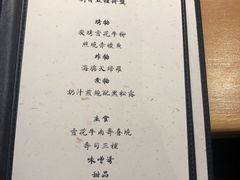 烤物
炙烤雪花牛柳
煎焗青磯魚
炸物
海膽天婦羅
煮物
奶汁煎焗配黑松露
主食
雪花牛肉壽喜燒
壽司三種
味噌湯
甜品